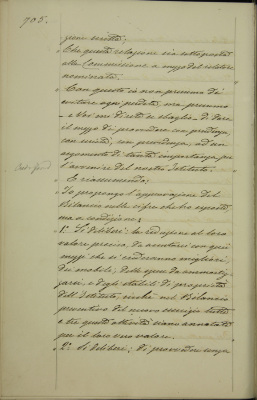 705.
sieno accolte;
Che questa relazione sia sottoposta
alla Commissione a mezzo del relatore
nominato.
Con questo io non presumo di
evitare ogni perdita, ma presumo
di dare
il mezzo di provvedere con prudenza,
con scienza, con provvidenza, ad un
argomento di tanta importanza per
l'avvenire del nostro Istituto.
E riassumendo;
Io propongo l'approvazione del
Bilancio nelle cifre che ho esposte
ma a condizione:
1.° Si deliberi: la riduzione al loro
valore preciso, da accertarsi con quei
mezzi che si crederanno migliori,
dei mobili, delle spese da ammortiz-
zarsi, e degli stabili di proprietà
dell'Istituto, sicchè nel Bilancio
preventivo del nuovo esercizio tutte
e tre queste attività siano annotate
per il loro vero valore.
2.° Si deliberi: di provvedere senza